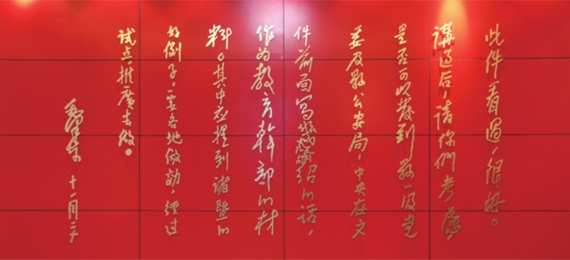 此件看过，很好。
讲过后，请你们考虑，
是否可以发到县一级党
委及县公安局，中央在文
件前面写几句介绍的话，
作为教育干部的材
料。其中应提到诸暨的
好例子，要各地仿效，经过
试点推广去做。
毛泽东
十一月二十